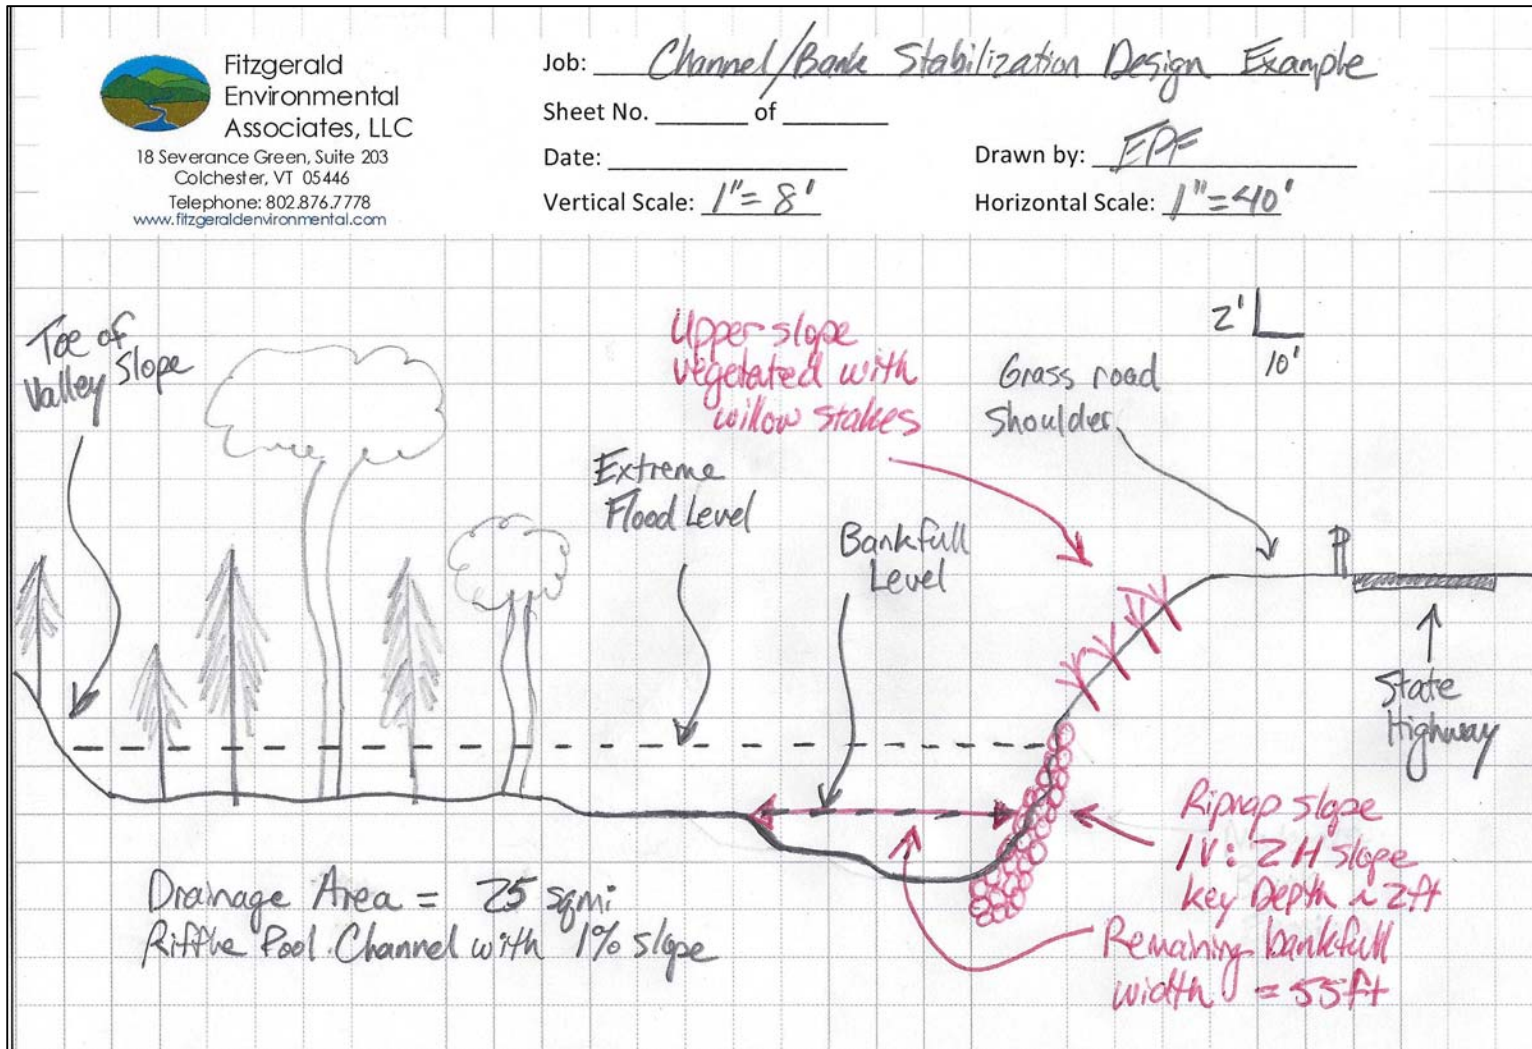 Fitzgerald
Environmental
Associates, LLC
18 Severance Green, Suite 203
Colchester, VT 05446
Telephone: 802.876.7778
www.fitzgeraldenvironmental.com
Job: Channel/Bank Stabilization Design Example
Sheet No. ______ of ______
Date: ______
Drawn by: EPF
Vertical Scale: 1"= 8'
Horizontal Scale: 1"=40'
Toe of
Valley Slope
Upper slope
vegetated with
willow stakes
2'
10'
Grass road
Shoulder
Extreme
Flood Level
Bankfull
Level
State
Highway
Riprap slope
1V: 2H slope
key Depth ~ 2ft
Remaining bankfull
width = 55ft
Drainage Area = 25 sqmi
Riffle Pool Channel with 1% slope